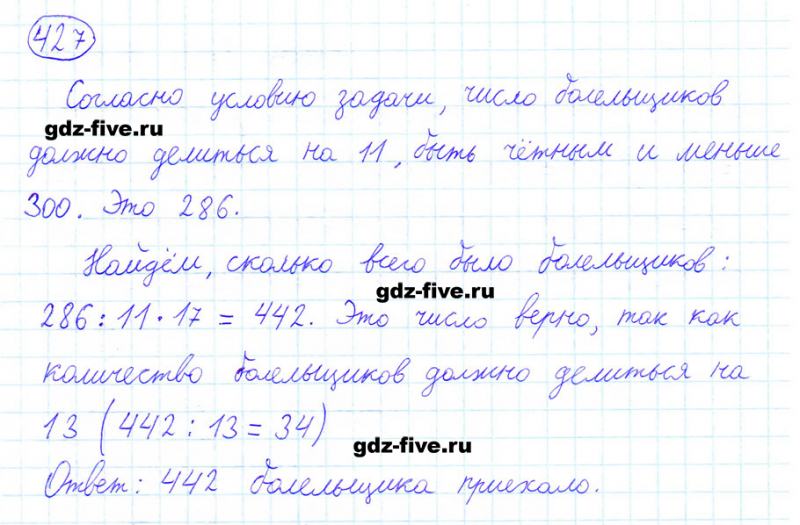 427
Согласно условию задачи, число болельщиков
gdz-five.ru
должно делиться на 11, быть чётным и меньше
300. Это 286.
Найдём, сколько всего было болельщиков:
gdz-five.ru
286 : 11 · 17 = 442. Это число верно, так как
количество болельщиков должно делиться на
13 (442 : 13 = 34)
gdz-five.ru
Ответ: 442 болельщика приехало.